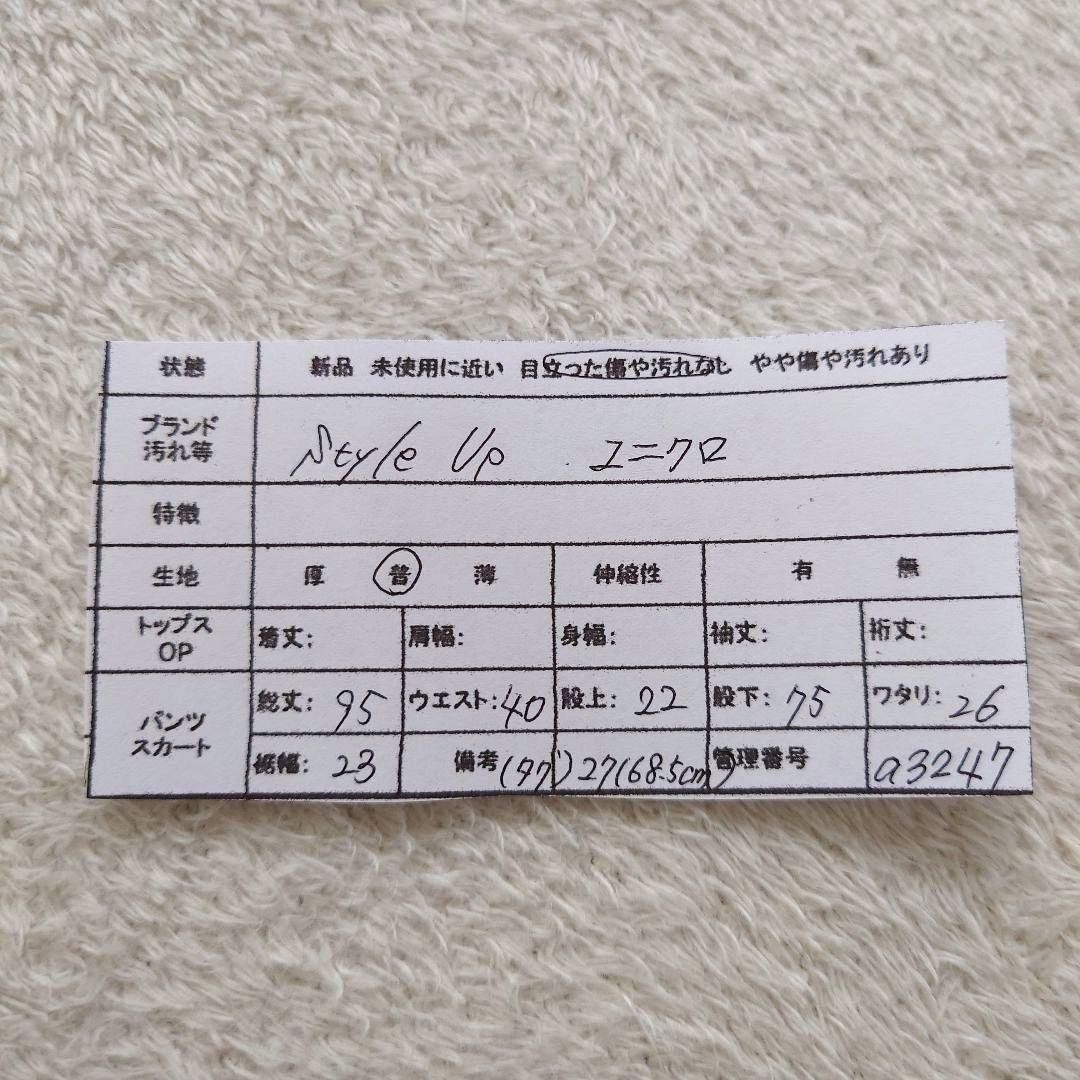 状態 新品 未使用に近い 目立った傷や汚れなし やや傷や汚れあり
ブランド
汚れ等 Style Up ユニクロ
特徴
生地 厚 普 薄 伸縮性 有 無
トップス
OP 着丈: 肩幅: 身幅: 袖丈: 裄丈:
パンツ
スカート 総丈: 95 ウエスト: 40 股上: 22 股下: 75 ワタリ: 26
裾幅: 23 備考 27(68.5cm) 管理番号 a3247